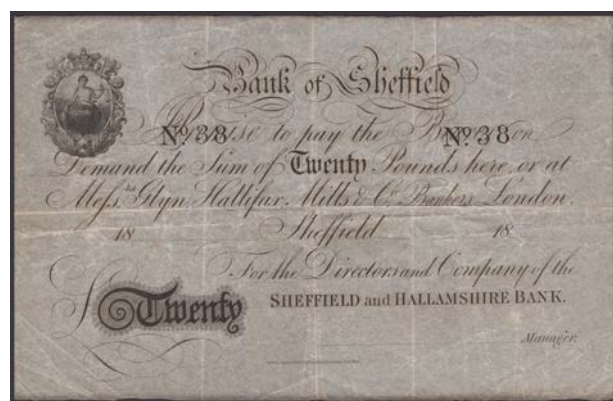 Bank of Sheffield
I Promise to pay the Bearer on
Nº 38 Nº 38
Demand the Sum of Twenty Pounds here, or at
Mess.rs Glyn, Hallifax, Mills & Cº Bankers London.
18 Sheffield 18
For the Directors and Company of the
£ Twenty SHEFFIELD and HALLAMSHIRE BANK.
Manager.